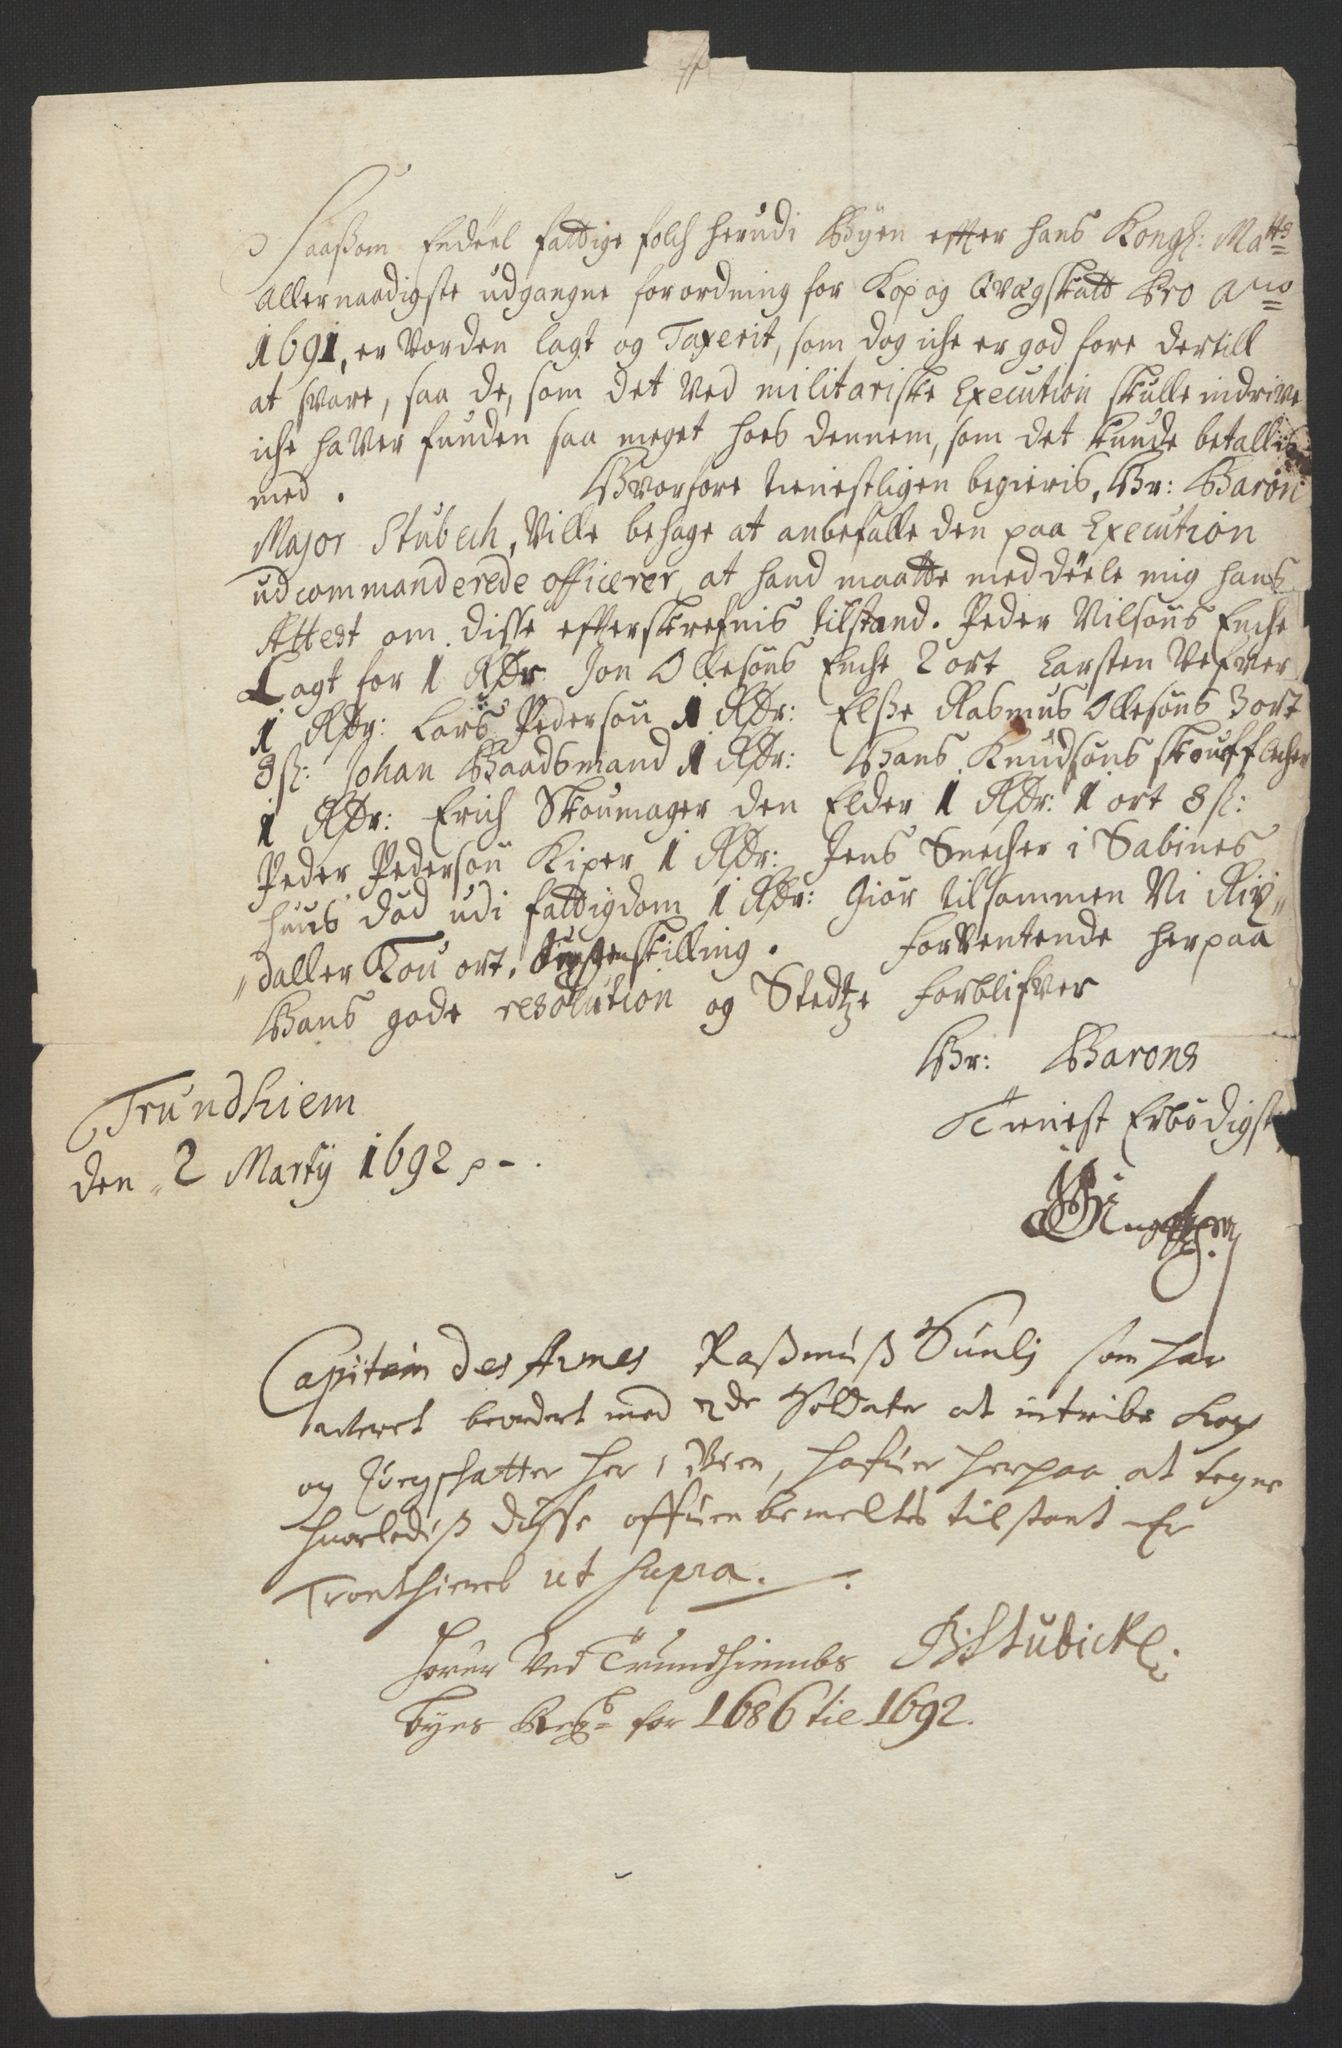 Saaßom Endeel fattige folch herudi Byen efter hans Kongl: Matts
allernaadigste udgangne forordning for Kop og Qvægskatt Pro Ano
1691, er vorden lagt og Taxerit, som dog iche er god fore dertill
at svare, saa de, som det ved militariske Execution skulle indrive
iche haver funden saa meget hoes dennem, som det kunde betallis
med. Hvorfore tienestligen begieris, Hr: Baron
Major Stubech, Ville behage at anbefalle den paa Execution
udcommanderede officerer, at hand maatte meddeele mig hans
Attest om disse efterskrefnis tilstand. Peder Nilsøns Enche
Lagt for 1 Rdr: Jon Ollesøns Enche 2 ort Carsten Vefver
1 Rdr: Lars Pedersøn 1 Rdr: Elße Rasmus Ollesøns 3 ort
8 sl: Johan Baadsmand 1 Rdr: Hans Knudsøns skoufflicher
1 Rdr: Erich Skoumager den Elder 1 Rdr: 1 ort 8 sl:
Peder Pedersøn Kiper 1 Rdr: Jens Snecher i Sabines
huus død udi fattigdom 1 Rdr: Giør tilsammen Ni Rix
daller Tou ort, skilling. Forventende herpaa
Hans gode resolution og Stedtze forblifver
Hr: Barons
Tienest Erbødigste
Trundhiem
den 2 Martij 1692
Capitain des Armes Raßmuß som har
veret beordert med 2de Soldater at intribe Kop
og Qvegskatter her i Bien, hafuer herpaa at tegne
huorlediß disse offuenbemeltes tilstant Er
Tronthiem ut supra.
Hører Ved Trundhiembs B: Stubick
Byes Regsb for 1686 til 1692.